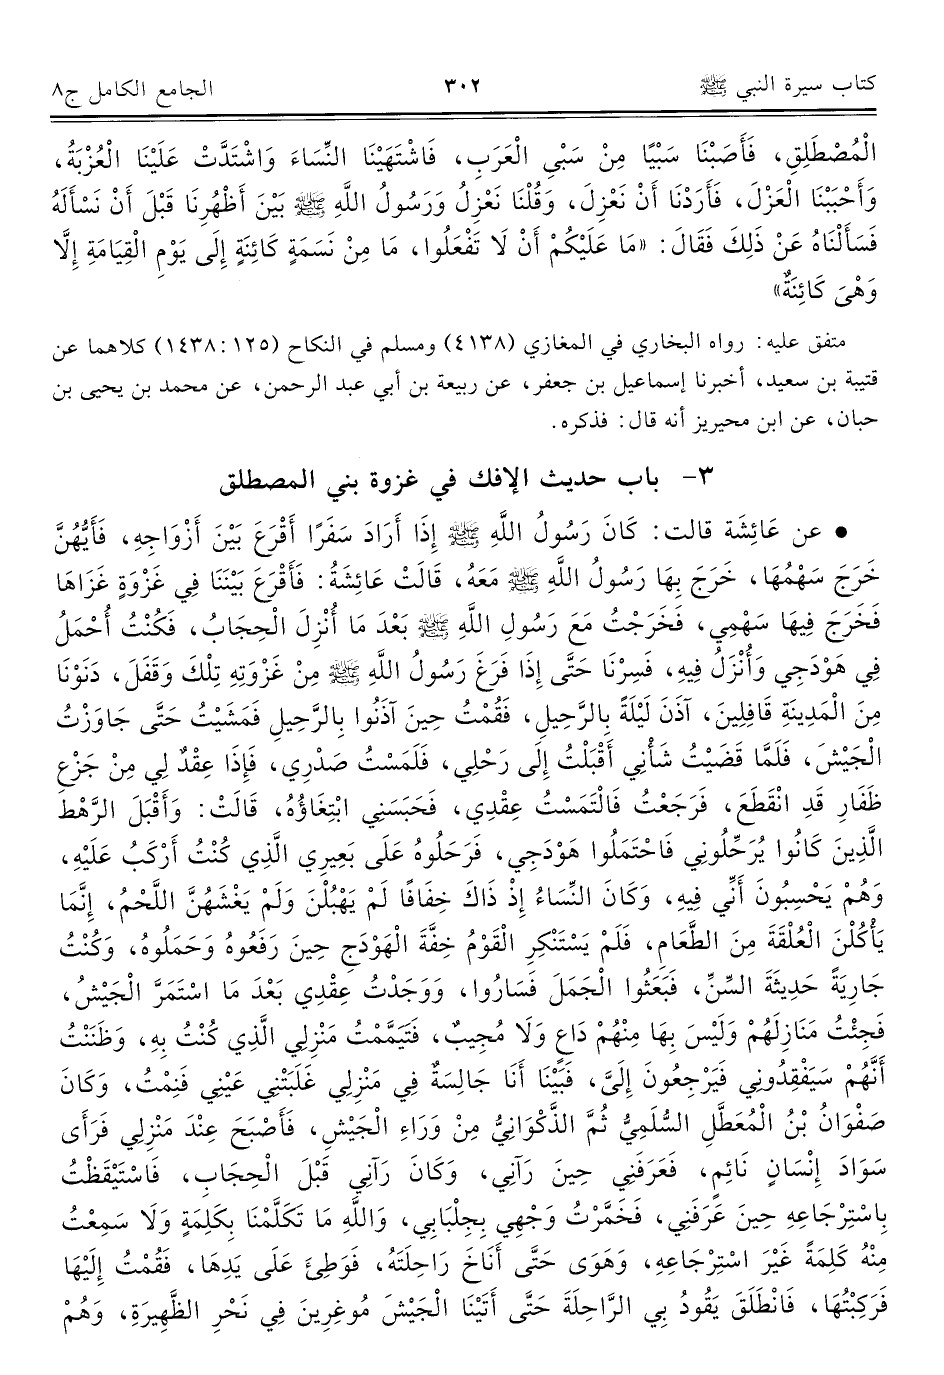 كتاب سيرة النبي ﷺ ٣٠٢ الجامع الكامل ج٨
الْمُصْطَلِقِ، فَأَصَبْنَا سَبْيًا مِنْ سَبْيِ الْعَرَبِ، فَاشْتَهَيْنَا النِّسَاءَ وَاشْتَدَّتْ عَلَيْنَا الْعُزْبَةُ،
وَأَحْبَبْنَا الْعَزْلَ، فَأَرَدْنَا أَنْ نَعْزِلَ، وَقُلْنَا نَعْزِلُ وَرَسُولُ اللَّهِ ﷺ بَيْنَ أَظْهُرِنَا قَبْلَ أَنْ نَسْأَلَهُ
فَسَأَلْنَاهُ عَنْ ذَلِكَ فَقَالَ: «مَا عَلَيْكُمْ أَنْ لَا تَفْعَلُوا، مَا مِنْ نَسَمَةٍ كَائِنَةٍ إِلَى يَوْمِ الْقِيَامَةِ إِلَّا
وَهْيَ كَائِنَةٌ»
متفق عليه: رواه البخاري في المغازي (٤١٣٨) ومسلم في النكاح (١٢٥: ١٤٣٨) كلاهما عن
قتيبة بن سعيد، أخبرنا إسماعيل بن جعفر، عن ربيعة بن أبي عبد الرحمن، عن محمد بن يحيى بن
حبان، عن ابن محيريز أنه قال: فذكره.
٣- باب حديث الإفك في غزوة بني المصطلق
• عن عَائِشَة قالت: كَانَ رَسُولُ اللَّهِ ﷺ إِذَا أَرَادَ سَفَرًا أَقْرَعَ بَيْنَ أَزْوَاجِهِ، فَأَيُّهُنَّ
خَرَجَ سَهْمُهَا، خَرَجَ بِهَا رَسُولُ اللَّهِ ﷺ مَعَهُ، قَالَتْ عَائِشَةُ: فَأَقْرَعَ بَيْنَنَا فِي غَزْوَةٍ غَزَاهَا
فَخَرَجَ فِيهَا سَهْمِي، فَخَرَجْتُ مَعَ رَسُولِ اللَّهِ ﷺ بَعْدَ مَا أُنْزِلَ الْحِجَابُ، فَكُنْتُ أُحْمَلُ
فِي هَوْدَجِي وَأُنْزَلُ فِيهِ، فَسِرْنَا حَتَّى إِذَا فَرَغَ رَسُولُ اللَّهِ ﷺ مِنْ غَزْوَتِهِ تِلْكَ وَقَفَلَ، دَنَوْنَا
مِنَ الْمَدِينَةِ قَافِلِينَ، آذَنَ لَيْلَةً بِالرَّحِيلِ، فَقُمْتُ حِينَ آذَنُوا بِالرَّحِيلِ فَمَشَيْتُ حَتَّى جَاوَزْتُ
الْجَيْشَ، فَلَمَّا قَضَيْتُ شَأْنِي أَقْبَلْتُ إِلَى رَحْلِي، فَلَمَسْتُ صَدْرِي، فَإِذَا عِقْدٌ لِي مِنْ جَزْعِ
ظَفَارِ قَدِ انْقَطَعَ، فَرَجَعْتُ فَالْتَمَسْتُ عِقْدِي، فَحَبَسَنِي ابْتِغَاؤُهُ، قَالَتْ: وَأَقْبَلَ الرَّهْطُ
الَّذِينَ كَانُوا يُرَحِّلُونِي فَاحْتَمَلُوا هَوْدَجِي، فَرَحَلُوهُ عَلَى بَعِيرِي الَّذِي كُنْتُ أَرْكَبُ عَلَيْهِ،
وَهُمْ يَحْسِبُونَ أَنِّي فِيهِ، وَكَانَ النِّسَاءُ إِذْ ذَاكَ خِفَافًا لَمْ يَهْبُلْنَ وَلَمْ يَغْشَهُنَّ اللَّحْمُ، إِنَّمَا
يَأْكُلْنَ الْعُلْقَةَ مِنَ الطَّعَامِ، فَلَمْ يَسْتَنْكِرِ الْقَوْمُ خِفَّةَ الْهَوْدَجِ حِينَ رَفَعُوهُ وَحَمَلُوهُ، وَكُنْتُ
جَارِيَةً حَدِيثَةَ السِّنِّ، فَبَعَثُوا الْجَمَلَ فَسَارُوا، وَوَجَدْتُ عِقْدِي بَعْدَ مَا اسْتَمَرَّ الْجَيْشُ،
فَجِئْتُ مَنَازِلَهُمْ وَلَيْسَ بِهَا مِنْهُمْ دَاعٍ وَلَا مُجِيبٌ، فَتَيَمَّمْتُ مَنْزِلِي الَّذِي كُنْتُ بِهِ، وَظَنَنْتُ
أَنَّهُمْ سَيَفْقِدُونِي فَيَرْجِعُونَ إِلَيَّ، فَبَيْنَا أَنَا جَالِسَةٌ فِي مَنْزِلِي غَلَبَتْنِي عَيْنِي فَنِمْتُ، وَكَانَ
صَفْوَانُ بْنُ الْمُعَطَّلِ السُّلَمِيُّ ثُمَّ الذَّكْوَانِيُّ مِنْ وَرَاءِ الْجَيْشِ، فَأَصْبَحَ عِنْدَ مَنْزِلِي فَرَأَى
سَوَادَ إِنْسَانٍ نَائِمٍ، فَعَرَفَنِي حِينَ رَآنِي، وَكَانَ رَآنِي قَبْلَ الْحِجَابِ، فَاسْتَيْقَظْتُ
بِاسْتِرْجَاعِهِ حِينَ عَرَفَنِي، فَخَمَّرْتُ وَجْهِي بِجِلْبَابِي، وَاللَّهِ مَا تَكَلَّمْنَا بِكَلِمَةٍ وَلَا سَمِعْتُ
مِنْهُ كَلِمَةً غَيْرَ اسْتِرْجَاعِهِ، وَهَوَى حَتَّى أَنَاخَ رَاحِلَتَهُ، فَوَطِئَ عَلَى يَدِهَا، فَقُمْتُ إِلَيْهَا
فَرَكِبْتُهَا، فَانْطَلَقَ يَقُودُ بِي الرَّاحِلَةَ حَتَّى أَتَيْنَا الْجَيْشَ مُوغِرِينَ فِي نَحْرِ الظَّهِيرَةِ، وَهُمْ